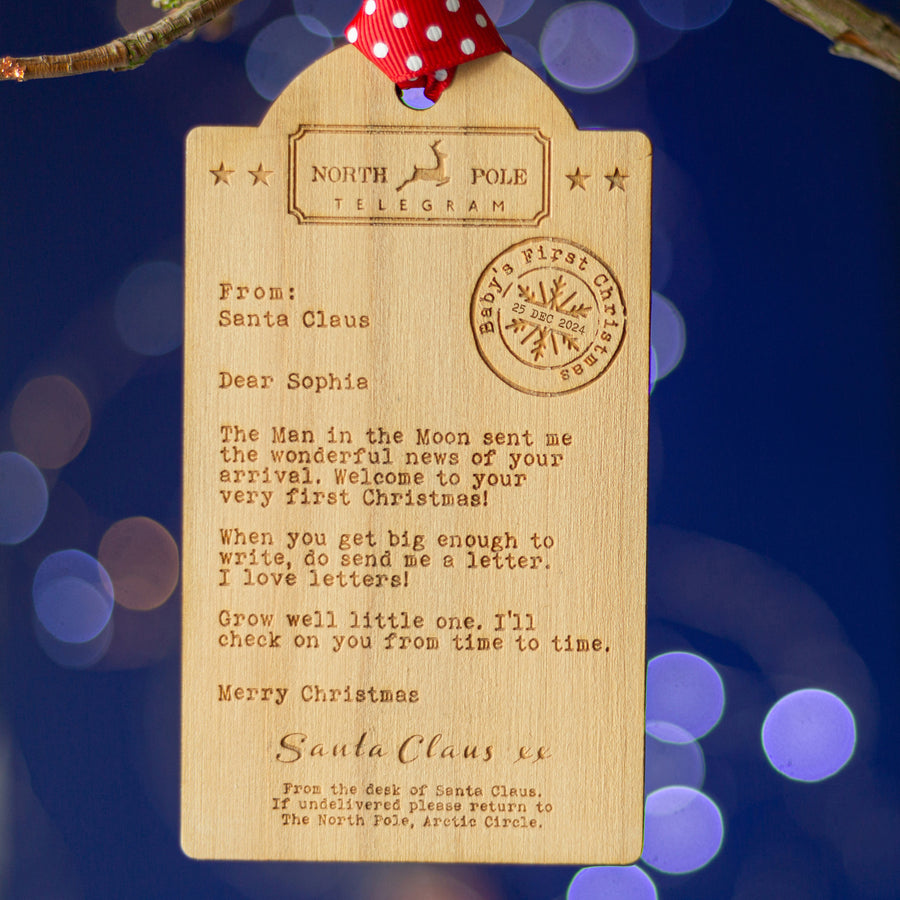 NORTH POLE
TELEGRAM
Baby's First Christmas
25 DEC 2024
From:
Santa Claus
Dear Sophia
The Man in the Moon sent me
the wonderful news of your
arrival. Welcome to your
very first Christmas!
When you get big enough to
write, do send me a letter.
I love letters!
Grow well little one. I'll
check on you from time to time.
Merry Christmas
Santa Claus xx
From the desk of Santa Claus.
If undelivered please return to
The North Pole, Arctic Circle.